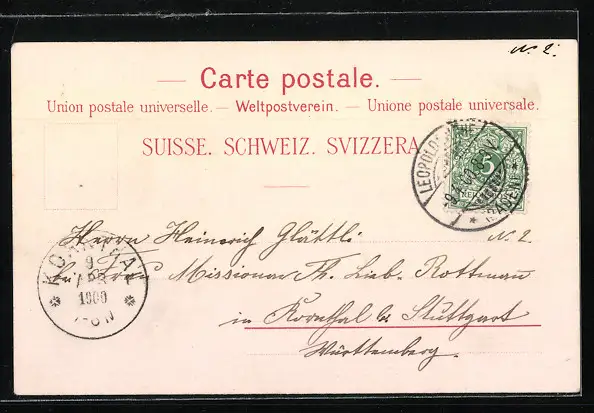 No 2.
Carte postale.
Union postale universelle. – Weltpostverein. – Unione postale universale.
SUISSE. SCHWEIZ. SVIZZERA
5
BADEN
Herrn Heinrich Glättli
No 2.
bei Herrn Missionar Th. Lieb. Rottmann
in Kornthal bei Stuttgart
Württemberg.
KORNTHAL
9
APR
1900